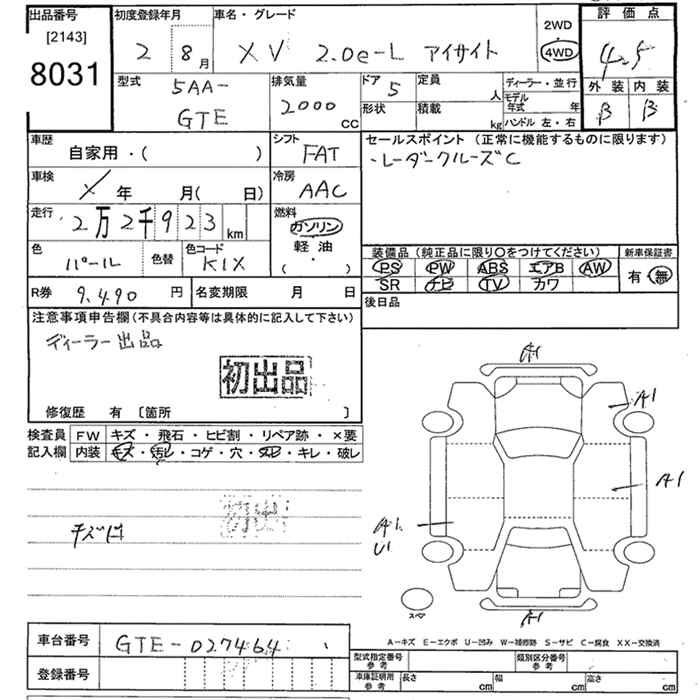 出品番号 初度登録年月 車名・グレード 2WD 評価点
[2143] 2 8月 XV 2.0e-L アイサイト 4WD 4.5
8031
型式 5AA-GTE 排気量 2000 CC ドア 5 定員 人 ディーラー・並行 外装 内装
形状 積載 kg モデル年式 年 B B
ハンドル 左・右
車歴 自家用・( ) シフト FAT セールスポイント (正常に機能するものに限ります)
・レーダークルーズC
車検 年 月( 日) 冷房 AAC
走行 2万2千923km 燃料 ガソリン
軽油
( ・ )
色 パール 色替 色コード K1X 装備品 (純正品に限り○をつけてください) 新車保証書
PS PW ABS エアB AW 有・無
SR ナビ TV カワ
R券 9,490円 名変期限 月 日 後日品
注意事項申告欄 (不具合内容等は具体的に記入して下さい)
ディーラー出品
初出品
修復歴 有 〔箇所 〕
検査員 FW キズ・飛石・ヒビ割・リペア跡・×要
記入欄 内装 キズ・汚レ・コゲ・穴・スレ・キレ・破レ
初出
A1
A1
A1
A1
U1
A1
スペア
A-キズ E-エクボ U-凹み W-補修跡 S-サビ C-腐食 XX-交換済
車台番号 GTE-027464
登録番号
型式指定番号 参考 類別区分番号 参考
車庫証明用 参考 長さ cm 幅 cm 高さ cm